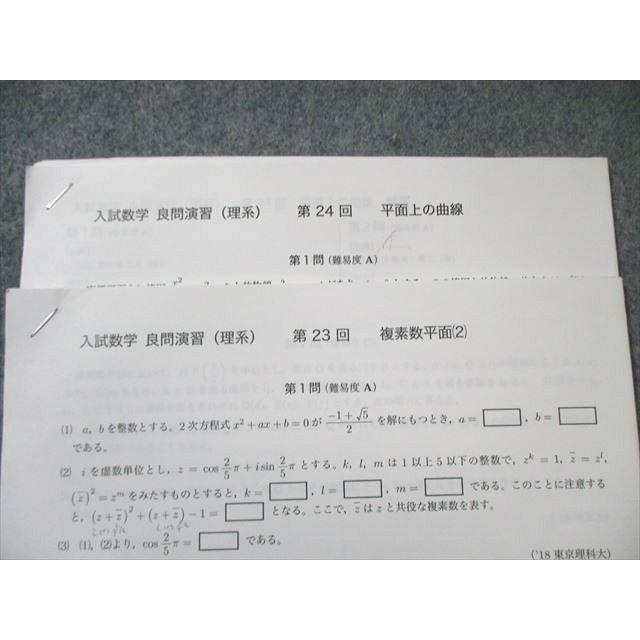 入試数学 良問演習（理系） 第 24 回 平面上の曲線
第 1 問 (難易度 A)
入試数学 良問演習（理系） 第 23 回 複素数平面⑵
第 1 問 (難易度 A)
⑴ a, b を整数とする。2 次方程式 x² + ax + b = 0 が (-1+√5)/2 を解にもつとき, a = □, b = □
である。
⑵ i を虚数単位とし, z = cos 2/5 π + i sin 2/5 π とする。k, l, m は 1 以上 5 以下の整数で, z^k = 1, z̄ = z^l,
(z̄)² = z^m をみたすものとすると, k = □, l = □, m = □ である。このことに注意する
と, (z + z̄)² + (z + z̄) − 1 = □ となる。ここで, z̄ は z と共役な複素数を表す。
⑶ ⑴, ⑵より, cos 2/5 π = □ である。
('18 東京理科大)